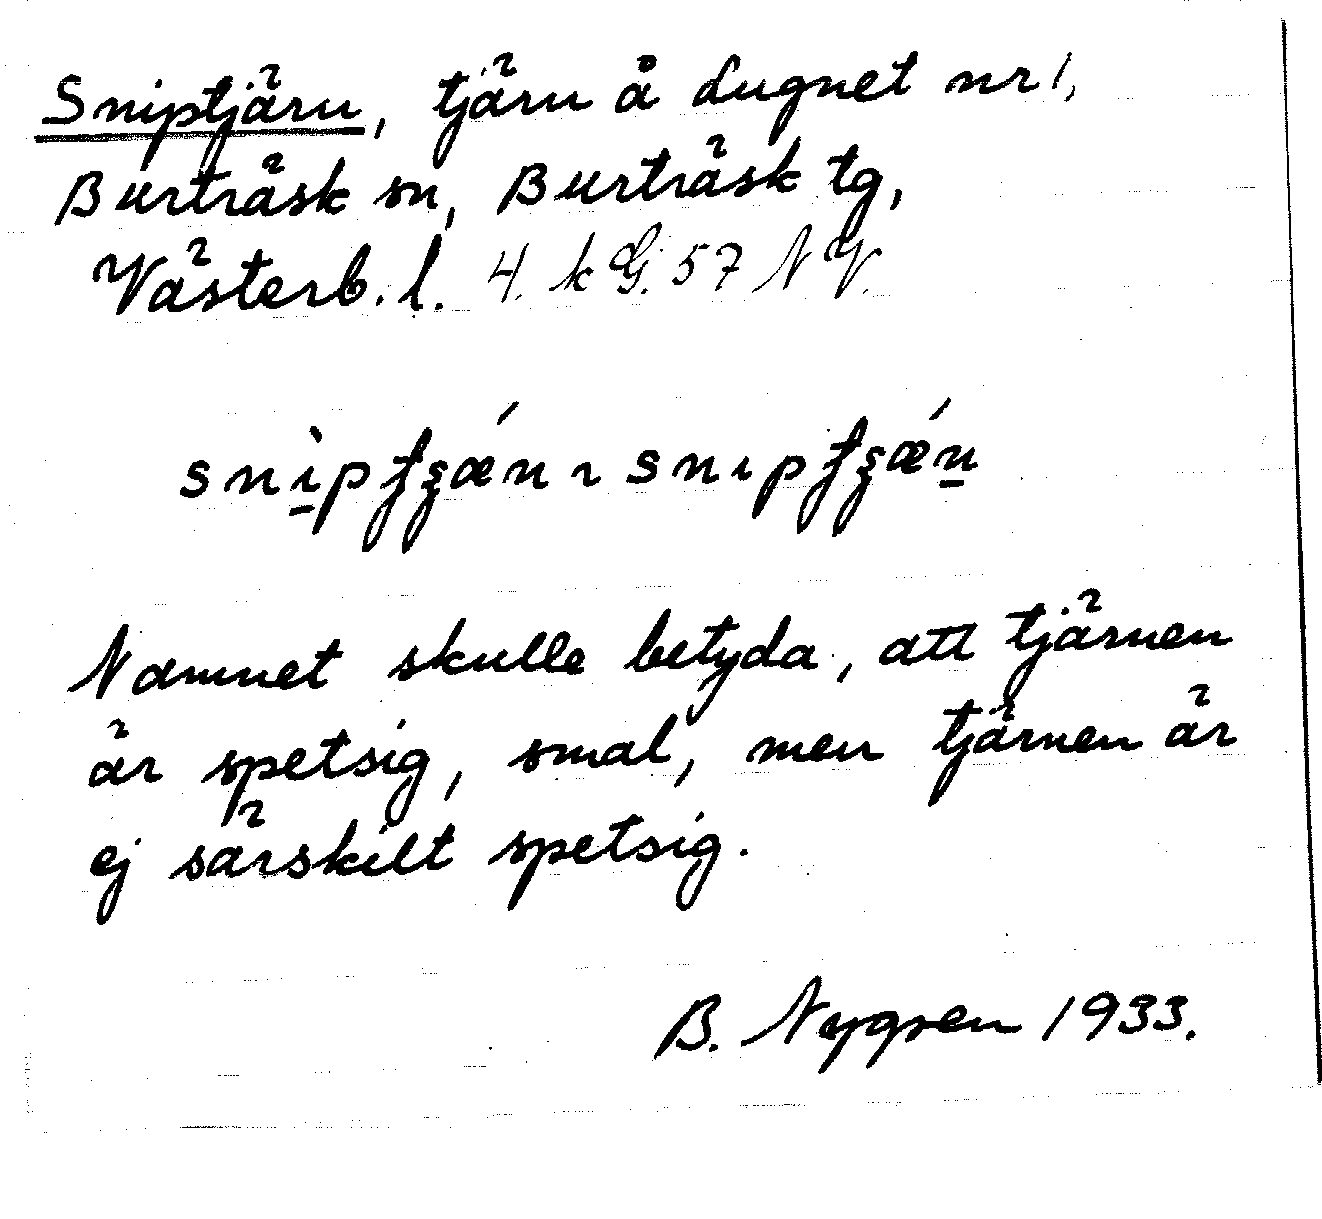 Sniptjärn, tjärn å Lugnet nr 1,
Burträsk sn, Burträsk tg,
Västerb. l. 4. k G. 57 N V.
Namnet skulle betyda, att tjärnen
är spetsig, smal, men tjärnen är
ej särskilt spetsig.
B. Nygren 1933.